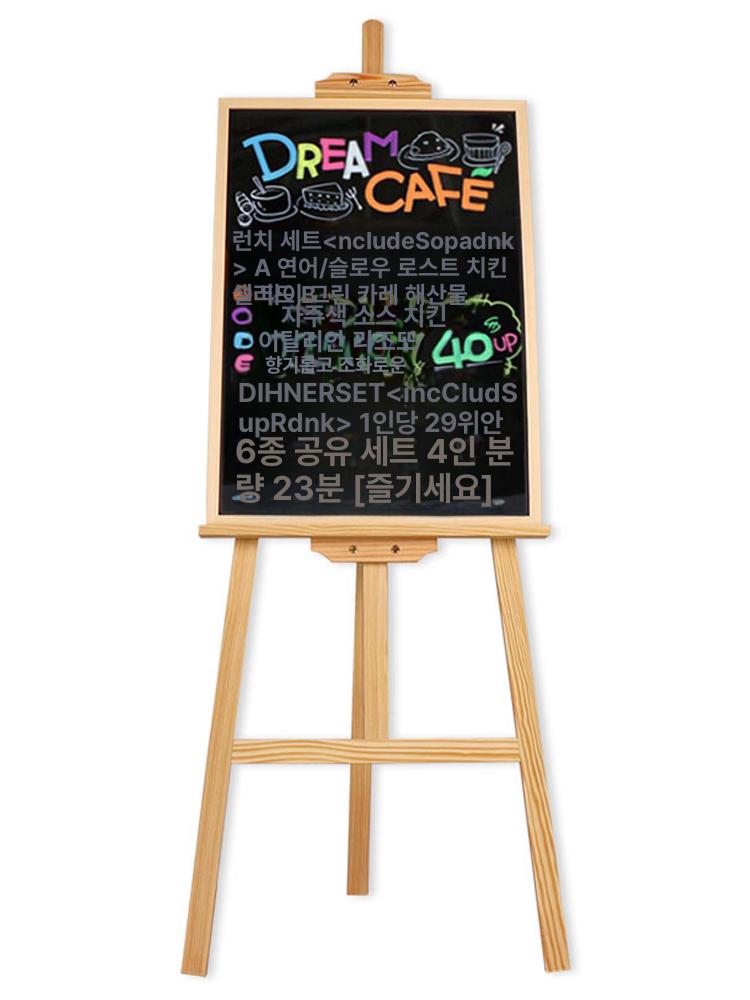 DREAM
CAFÉ
런치 세트<ncludeSopadnk
> A 연어/슬로우 로스트 치킨
그린 카레 해산물
자주색 소스 치킨
이탈리안 리조또
40 UP
향기롭고 조화로운
DIHNERSET<incCludS
upRdnk> 1인당 29위안
6종 공유 세트 4인 분
량 23분 [즐기세요]